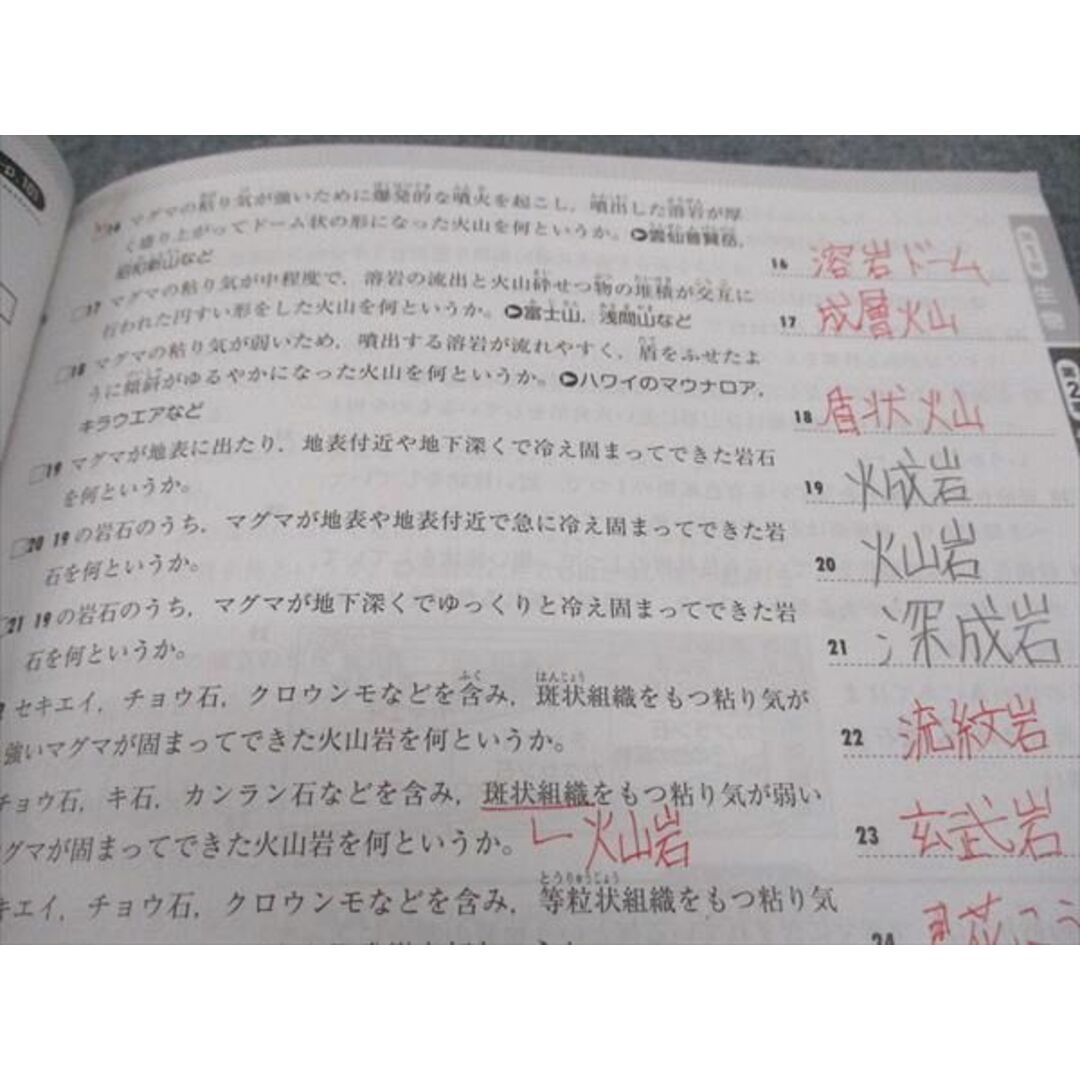 16 マグマの粘り気が強いために爆発的な噴火を起こし，噴出した溶岩が厚
く盛り上がってドーム状の形になった火山を何というか。▶雲仙普賢岳，
昭和新山など
16 溶岩ドーム
□17 マグマの粘り気が中程度で，溶岩の流出と火山砕せつ物の堆積が交互に
行われた円すい形をした火山を何というか。▶富士山，浅間山など
17 成層火山
□18 マグマの粘り気が弱いため，噴出する溶岩が流れやすく，盾をふせたよ
うに傾斜がゆるやかになった火山を何というか。▶ハワイのマウナロア，
キラウエアなど
18 盾状火山
□19 マグマが地表に出たり，地表付近や地下深くで冷え固まってできた岩石
を何というか。
19 火成岩
□20 19の岩石のうち，マグマが地表や地表付近で急に冷え固まってできた岩
石を何というか。
20 火山岩
21 19の岩石のうち，マグマが地下深くでゆっくりと冷え固まってできた岩
石を何というか。
21 深成岩
セキエイ，チョウ石，クロウンモなどを含み，斑状組織をもつ粘り気が
強いマグマが固まってできた火山岩を何というか。
22 流紋岩
チョウ石，キ石，カンラン石などを含み，斑状組織をもつ粘り気が弱い
グマが固まってできた火山岩を何というか。
火山岩
23 玄武岩
キエイ，チョウ石，クロウンモなどを含み，等粒状組織をもつ粘り気
24 花こう
第2章